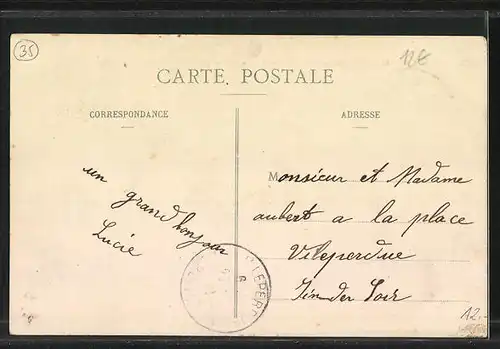 35
12€
CARTE POSTALE
CORRESPONDANCE
ADRESSE
un grand bonjour
Lucie
Monsieur et Madame
aubert a la place
Vileperdue
Jin der Loir
LEPERD
12.-